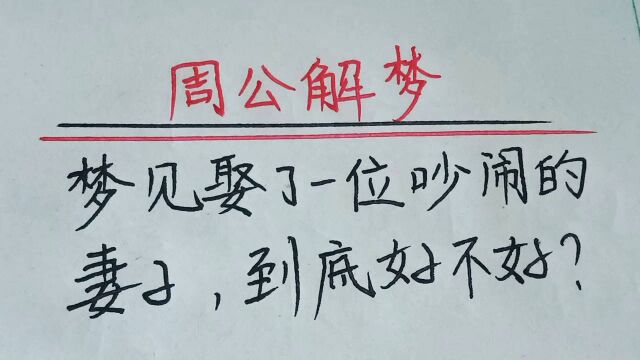 周公解梦
梦见娶了一位吵闹的
妻子，到底好不好？